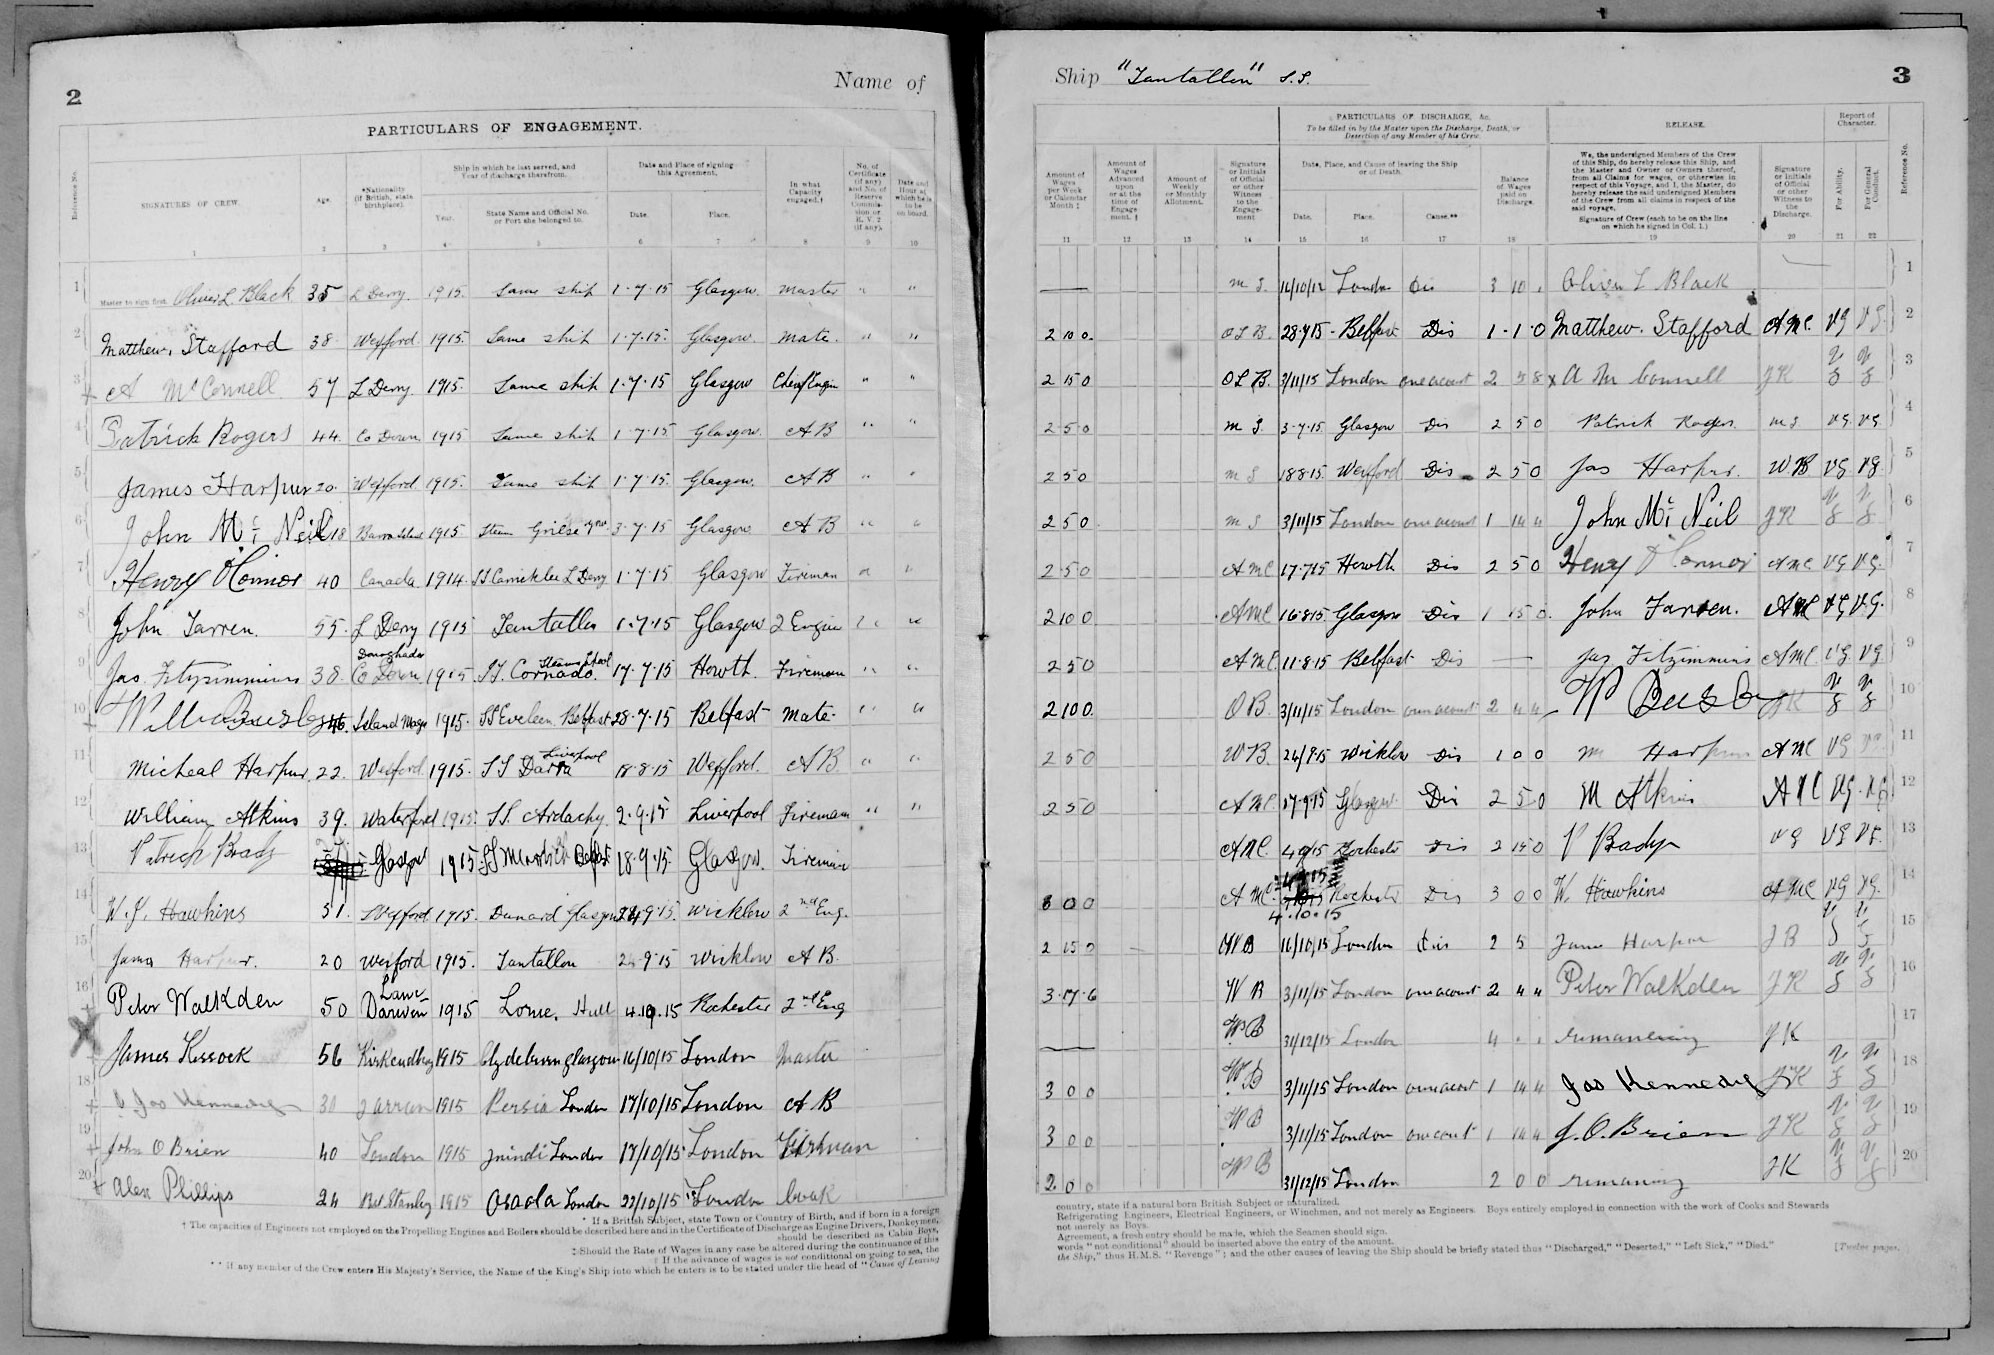 2
Name of
PARTICULARS OF ENGAGEMENT.
Reference No.
SIGNATURES OF CREW.
Age.
*Nationality (if British, state birthplace).
Ship in which he last served, and Year of discharge therefrom.
Year.
State Name and Official No. or Port she belonged to.
Date and Place of signing this Agreement.
Date.
Place.
In what Capacity engaged.†
No. of Certificate (if any) and No. of Reserve Commission or R. V. 2 (if any).
Date and Hour at which he is to be on board.
1 2 3 4 5 6 7 8 9 10
1 Master to sign first. Oliver L Black 35 L Derry. 1915. Same ship 1.7.15 Glasgow. Master " "
2 Matthew Stafford 38 Wexford 1915. Same ship 1.7.15. Glasgow Mate. " "
3 A McConnell 57 L Derry 1915. Same ship 1.7.15 Glasgow Chief Engin " "
4 Patrick Rogers 44. Co Down 1915 Same ship 1.7.15 Glasgow. A B " "
5 James Harpur 20. Wexford. 1915. Same ship 1.7.15. Glasgow. A B " "
6 John Mc Neil 18 1915 3.7.15 Glasgow A B " "
7 Henry O'Connor 40 Canada 1914. L Derry 1.7.15 Glasgow Fireman " "
8 John Farren. 55. L Derry 1915 Tantallon 1.7.15 Glasgow 2 Engin " "
9 Jas. Fitzsimmins 38. Donaghadee Co Down 1915 17.7.15 Howth. Fireman " "
10 46. Island Magee 1915. SS Eveleen Belfast 28.7.15 Belfast Mate. " "
11 Micheal Harpur. 22. Wexford 1915. SS Liverpool 18.8.15 Wexford. A B " "
12 William Atkins 39. Waterford 1915. SS. Ardachy. 2.9.15 Liverpool Fireman " "
13 Patrick Brady Glasgow 1915 Belfast 18.9.15. Glasgow. Fireman
14 W.J. Hawkins 51. Wexford 1915. Dunard Glasgow 24.9.15. Wicklow 2nd Eng.
15 James Harpur. 20 Wexford 1915. Tantallon 24.9.15 Wicklow A B.
16 Peter Walkden 50 Lanc Darwen 1915 Lorne, Hull 4.10.15 Rochester 2nd Eng
James Kissock 56 1915 Clydeburn Glasgow 16/10/15 London Master
18 Jas Kennedy 1915 Persia London 17/10/15 London A B
19 John O Brien 40 London 1915 London 17/10/15 London Fireman
20 Alex Phillips 24 Port Stanley 1915 London 22/10/15 London Cook
* If a British Subject, state Town or Country of Birth, and if born in a foreign
† The capacities of Engineers not employed on the Propelling Engines and Boilers should be described here and in the Certificate of Discharge as Engine Drivers, Donkeymen,
should be described as Cabin Boys,
‡ Should the Rate of Wages in any case be altered during the continuance of this
† If the advance of wages is not conditional on going to sea, the
** If any member of the Crew enters His Majesty's Service, the Name of the King's Ship into which he enters is to be stated under the head of "Cause of Leaving
Ship "Tantallon" S.S.
3
PARTICULARS OF DISCHARGE, &c.
To be filled in by the Master upon the Discharge, Death, or Desertion of any Member of his Crew.
RELEASE.
Report of Character.
Amount of Wages per Week or Calendar Month ‡
Amount of Wages Advanced upon or at the time of Engagement. ‡
Amount of Weekly or Monthly Allotment.
Signature or Initials of Official or other Witness to the Engagement
Date, Place, and Cause of leaving the Ship or of Death.
Date.
Place.
Cause.**
Balance of Wages paid on Discharge.
We, the undersigned Members of the Crew of this Ship, do hereby release this Ship, and the Master and Owner or Owners thereof, from all Claims for wages, or otherwise in respect of this Voyage, and I, the Master, do hereby release the said undersigned Members of the Crew from all claims in respect of the said voyage.
Signature of Crew (each to be on the line on which he signed in Col. 1.)
Signature or Initials of Official or other Witness to the Discharge.
For Ability.
For General Conduct.
Reference No.
11 12 13 14 15 16 17 18 19 20 21 22
— M S. London Dis 3 10 Oliver L Black 1
2 10 0. O L B. 28.7.15 Belfast Dis 1.1.0 Matthew. Stafford A MC. VG VG. 2
2 15 0 O L B. 3/11/15 London 2 5 8 x A Mc Connell J K 3
2.5.0 M S. 3.7.15. Glasgow Dis 2 5 0 Patrick Rogers. M S VG. VG. 4
2 5 0 M S 18.8.15. Wexford Dis 2 5 0 Jas Harpur. W B VG. VG. 5
2 5 0 M S 3/11/15 London 1 14 4 John Mc Neil J K 6
2.5.0 A MC 17.7.15 Howth Dis 2 5 0 Henry O'Connor A MC VG VG. 7
2 10 0 A MC 16.8.15 Glasgow Dis 1 15 0 John Farren. A MC VG VG. 8
2 5 0 A MC. 11.8.15 Belfast Dis — Jas Fitzimmins A MC. VG. VG 9
2 10 0. O B. 3/11/15 London 2 4 4 J K 10
2 5 0 W B. 24/9/15 Wicklow Dis 1 0 0 M Harpur A MC VG 11
2 5 0 A MC. 17.9.15 Glasgow Dis 2 5 0 M Atkins A MC VG. VG 12
A MC. Rochester Dis 2 15 0 P Brady VG VG. 13
A MC. 4.10.15 Rochester Dis 3 0 0 W. Hawkins A MC VG VG. 14
2 15 0 W B 16/10/15 London Dis 2 5 James Harpur J B 15
3.17.6 W B 3/11/15 London 2 4 4 Peter Walkden J K 16
— W B 31/12/15 London 4 remaining J K 17
3 0 0 W B 3/11/15 London 1 14 4 Jas Kennedy J K 18
3 0 0 W B 3/11/15 London 1 14 4 J. O. Brien J K 19
2 0 0 W B 31/12/15 London 2 0 0 remaining J K 20
country, state if a natural born British Subject or naturalized.
Refrigerating Engineers, Electrical Engineers, or Winchmen, and not merely as Engineers. Boys entirely employed in connection with the work of Cooks and Stewards
not merely as Boys.
Agreement, a fresh entry should be made, which the Seamen should sign.
words "not conditional" should be inserted above the entry of the amount.
the Ship," thus H.M.S. "Revenge"; and the other causes of leaving the Ship should be briefly stated thus "Discharged," "Deserted," "Left Sick," "Died."
[Twelve pages.